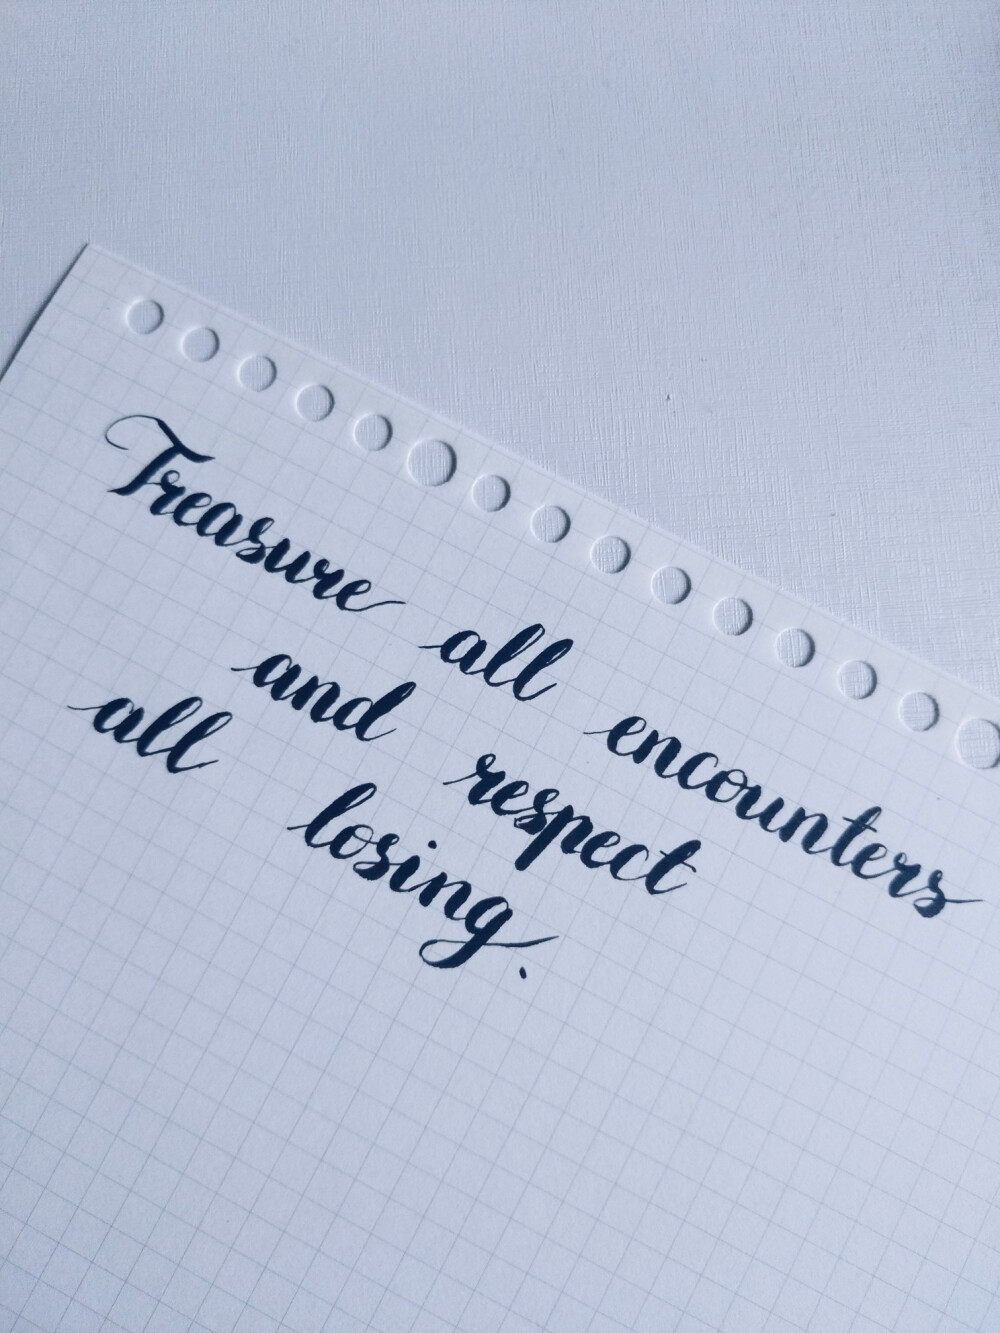 Treasure all encounters
and respect
all losing.